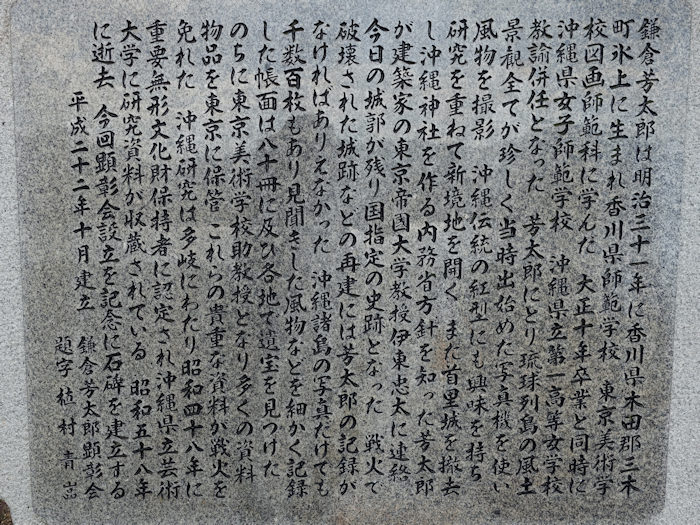 鎌倉芳太郎は明治三十一年に香川県木田郡三木
町氷上に生まれ香川県師範学校　東京美術学
校図画師範科に学んだ　大正十年卒業と同時に
沖縄県女子師範学校　沖縄県立第一高等女学校
教諭併任となった　芳太郎にとり琉球列島の風土
景観全てが珍しく当時出始めた写真機を使い
風物を撮影　沖縄伝統の紅型にも興味を持ち
研究を重ねて新境地を開く　また首里城を撤去
し沖縄神社を作る内務省方針を知った芳太郎
が建築家の東京帝国大学教授伊東忠太に連絡
今日の城郭が残り国指定の史跡となった　戦火で
破壊された城跡などの再建には芳太郎の記録が
なければありえなかった　沖縄諸島の写真だけでも
千数百枚もあり見聞きした風物などを細かく記録
した帳面は八十冊に及び各地で遺宝を見つけた
のちに東京美術学校助教授となり多くの資料
物品を東京に保管　これらの貴重な資料が戦火を
免れた　沖縄研究は多岐にわたり昭和四十八年に
重要無形文化財保持者に認定され沖縄県立芸術
大学に研究資料が収蔵されている　昭和五十八年
に逝去　今回顕彰会設立を記念に石碑を建立する
平成二十二年十月建立　鎌倉芳太郎顕彰会
題字　植村青